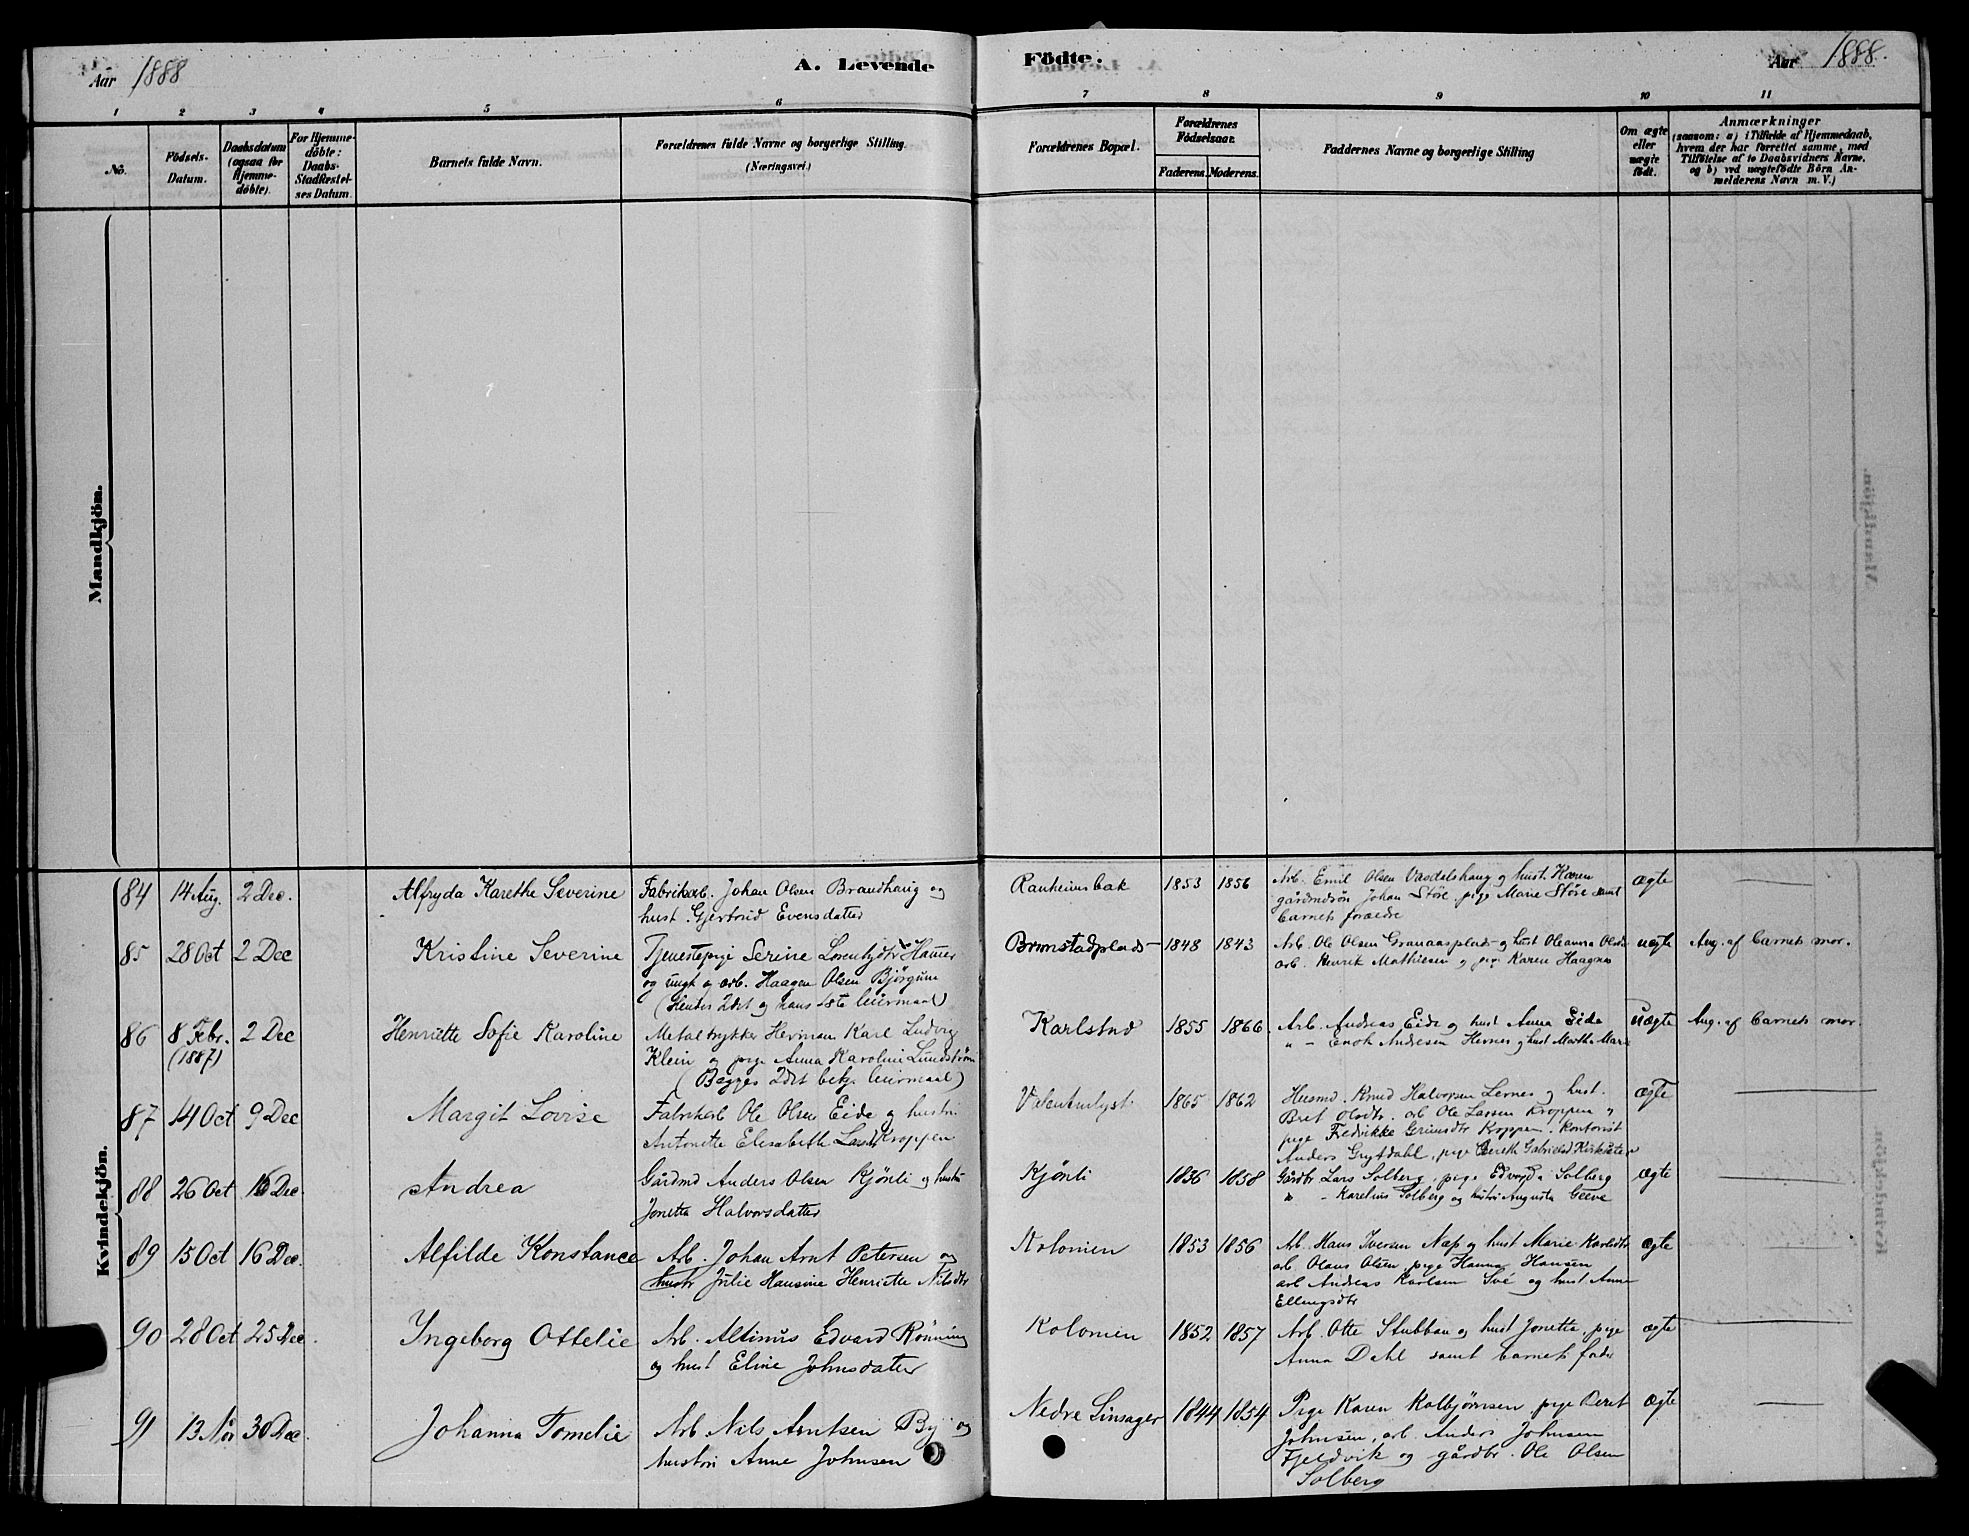 Aar 1888
A. Levende
Födte.
Aar 1888.
1 2 3 4 5 6 7 8 9 10 11
No.
Födsels-
Datum.
Daabsdatum
(ogsaa for
Hjemme-
döbte).
For Hjemme-
döbte:
Daabs-
Stadfæstel-
ses Datum.
Barnets fulde Navn.
Forældrenes fulde Navne og borgerlige Stilling.
(Næringsvei.)
Forældrenes Bopæl.
Forældrenes
Födselsaar.
Faderens. Moderens.
Faddernes Navne og borgerlige Stilling
Om ægte
eller
uægte
födt.
Anmærkninger
(saasom: a) i Tilfælde af Hjemmedaab,
hvem der har forrettet samme, med
Tilföielse af to Daabsvidners Navne,
og b) ved uægtefödte Börn An-
melderens Navn m. V.)
Mandkjön.
Kvindekjön.
84 14 Aug. 2 Dec. Alfryda Karethe Severine
Fabrikarb. Johan Olsen Brandhaug og
hust. Gjertrud Evensdatter
Ranheimsbak 1853 1856
Arb. Emil Olsen Vasdalshaug og hust. Karen
gårdmdsön Johan Störe, pige Marie Störe samt
barnets foræedre
ægte
85 28 Oct 2 Dec Kristine Severine
Tjenestepige Serine Lorentsdtr Hammer
og ungk og arb. Haagen Olsen Bjørgum
(Hendes 2det og hans 1ste leiermaal)
Brunstadplads 1848 1843
Arb. Ole Olsen Granaasplads og hust Oleanna Olsdr
arb. Henrik Mathiesen og pige Karen Haagens
uægte Ang. af barnets mor.
86 8 Febr. 2 Dec Henriette Sofie Karoline
(1887)
Metaltrykker Herman Karl Ludvig
Klein og pige Anna Karoline Lundström
(Begges 2det bekje leiermaal)
Karlstad 1855 1866
Arb. Andreas Eide og hust Anna Eide
" - Enok Andresen Hernes og hust Martha Marie
uægte Ang. af barnets mor.
87 14 Oct 9 Dec Margit Lovise
Fabrikarb Ole Olsen Eide og hustru
Antonette Elisabeth Larsdtr Kroppen
Valentinlyst 1865 1862
Husmd. Knud Halvorsen Lernes og hust.
Beret Olsdtr. arb Ole Larsen Kroppen og
pige Fredrikke Grimsdtr Kroppen. Kontorist
Anders Grytdahl, pige Bereth Gabrielsd Kirksæter
ægte
88 26 Oct 16 Dec Andrea
Gårdmd Anders Olsen Kjönli og hustr
Jonetta Halvorsdatter
Kjönli 1836 1858
Gårdbr Lars Solberg, pige Edvarda Solberg
" - Karelius Solberg og hustru Augusta Greve
ægte
89 15 Oct 16 Dec. Alfilde Konstance
Arb. Johan Arnt Petersen og
hustr Julie Hansine Henriette Nilsdtr
Kolonien 1853 1856
Arb. Hans Iversen Næss og hust Marie Karlsdtr
arb Olaus Olsen, pige Hanna Hansen
arb Andreas Karlsen Své og hust Anne
Ellingsdtr
ægte
90 28 Oct 25 Dec. Yngeborg Ottelie
Arb. Altinus Edvard Rönning
og hust Eline Johnsdatter
Kolonien 1852 1857
Arb. Otte Stubban og hust Jonetta, pige
Anna Dahl samt barnets fader
ægte
91 13 Nov 30 Dec. Johanna Tomelie
Arb Nils Arntsen By og
hustru Anne Johnsen
Nedre Linsager 1844 1854
Pige Karen Kolbjørnsen pige Beret
Johnsen, arb. Anders Johnsen
Fjeldvik og gårdbr. Ole Olsen
Solberg
ægte